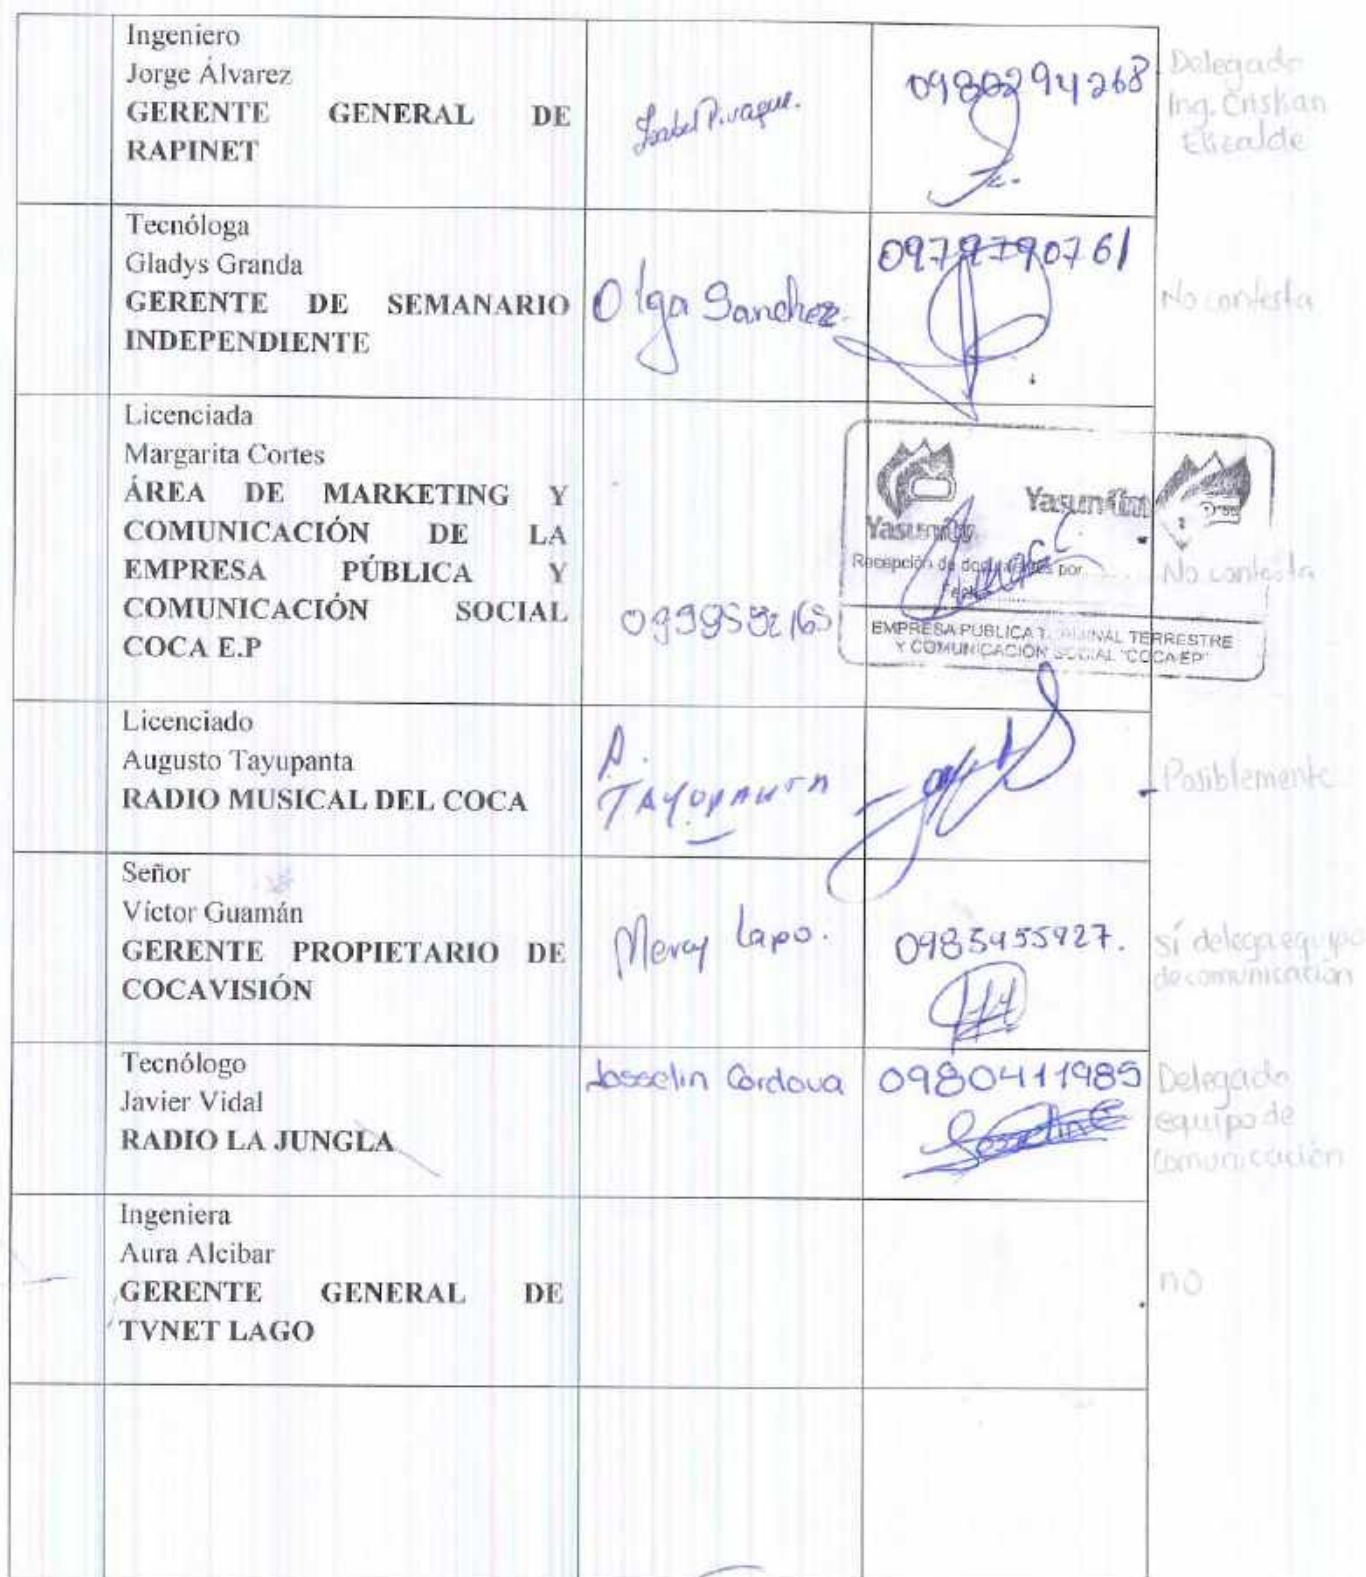 Ingeniero
Jorge Álvarez
GERENTE GENERAL DE
RAPINET
Isabel
0980294268
Delegado
Ing. Cristian
Elizalde
Tecnóloga
Gladys Granda
GERENTE DE SEMANARIO
INDEPENDIENTE
Olga Sanchez.
0979790761
No contesta
Licenciada
Margarita Cortes
ÁREA DE MARKETING Y
COMUNICACIÓN DE LA
EMPRESA PÚBLICA Y
COMUNICACIÓN SOCIAL
COCA E.P
Recepción de documentos por
EMPRESA PUBLICA TERMINAL TERRESTRE
Y COMUNICACIÓN SOCIAL "COCA EP"
No contesta
Licenciado
Augusto Tayupanta
RADIO MUSICAL DEL COCA
A.
TAYUPANTA
Posiblemente
Señor
Víctor Guamán
GERENTE PROPIETARIO DE
COCAVISIÓN
Mercy Lapo.
0985955927.
sí delega equipo
de comunicación
Tecnólogo
Javier Vidal
RADIO LA JUNGLA
Josselin Cordova
0980411985
Delegado
equipo de
comunicación
Ingeniera
Aura Alcibar
GERENTE GENERAL DE
TVNET LAGO
no